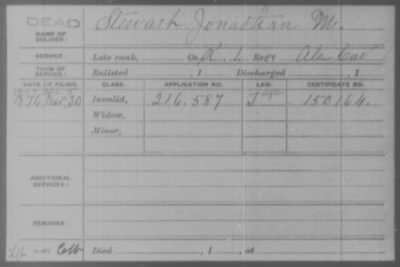 DEAD
NAME OF SOLDIER: Stewart, Jonathan M.
SERVICE: Late rank, Co. K, 1 Reg't Ala Cav
TERM OF SERVICE: Enlisted , 1 Discharged , 1
DATE OF FILING. CLASS. APPLICATION NO. LAW. CERTIFICATE NO.
1876, Mar. 30 Invalid, 216,587 150164.
Widow,
Minor,
ADDITIONAL SERVICES:
REMARKS:
Died , 1 , at